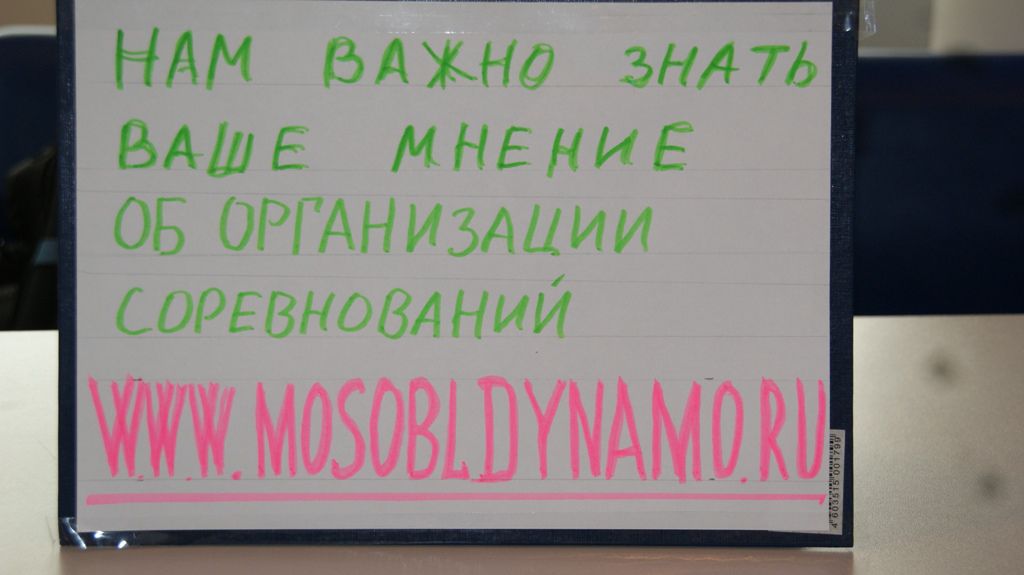 НАМ ВАЖНО ЗНАТЬ
ВАШЕ МНЕНИЕ
ОБ ОРГАНИЗАЦИИ
СОРЕВНОВАНИЙ
WWW.MOSOBLDYNAMO.RU
4 603515 001799